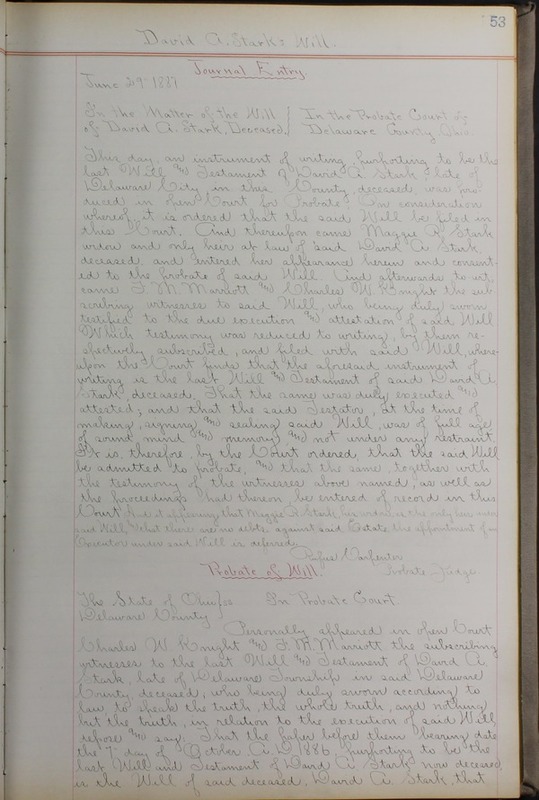 53
David A. Stark's Will.
Journal Entry.
June 29th 1887
In the Matter of the Will In the Probate Court of
of David A. Stark, Deceased. Delaware County Ohio.
This day, an instrument of writing, purporting to be the
last Will and Testament of David A. Stark, late of
Delaware City in this County, deceased, was pro-
duced in open Court for Probate. On consideration
whereof, it is ordered that the said Will be filed in
this Court. And thereupon came Maggie R. Stark
widow and only heir at law of said David A. Stark,
deceased, and entered her appearance herein and consent-
ed to the probate of said Will. And afterwards to wit;
came F. M. Marriott and Charles W. Knight the sub-
scribing witnesses to said Will, who being duly sworn
testified to the due execution and attestation of said Will
Which testimony was reduced to writing, by them re-
spectively subscribed, and filed with said Will, where-
upon the Court finds that the aforesaid instrument of
writing is the last Will and Testament of said David A.
Stark, deceased, That the same was duly executed and
attested; and that the said Testator, at the time of
making, signing and sealing said Will, was of full age
of sound mind and memory, and not under any restraint.
It is, therefore, by the Court ordered, that the said Will
be admitted to probate, and that the same, together with
the testimony of the witnesses above named, as well as
the proceedings had thereon, be entered of record in this
Court. And it appearing that Maggie R. Stark, his widow, is the only heir under
said Will, that there are no debts against said Estate, the appointment of an
Executor under said Will is deferred.
Rufus Carpenter
Probate Judge
Probate of Will.
The State of Ohio } ss In Probate Court.
Delaware County
Personally appeared in open Court
Charles W. Knight and F. M. Marriott the subscribing
witnesses to the last Will and Testament of David A.
Stark, late of Delaware Township in said Delaware
County, deceased, who being duly sworn according to
law to speak the truth, the whole truth, and nothing
but the truth, in relation to the execution of said Will,
depose and say: That the paper before them bearing date
the 7th day of October A.D. 1886, purporting to be the
last Will and Testament of David A. Stark now deceased,
is the Will of said deceased, David A. Stark, that